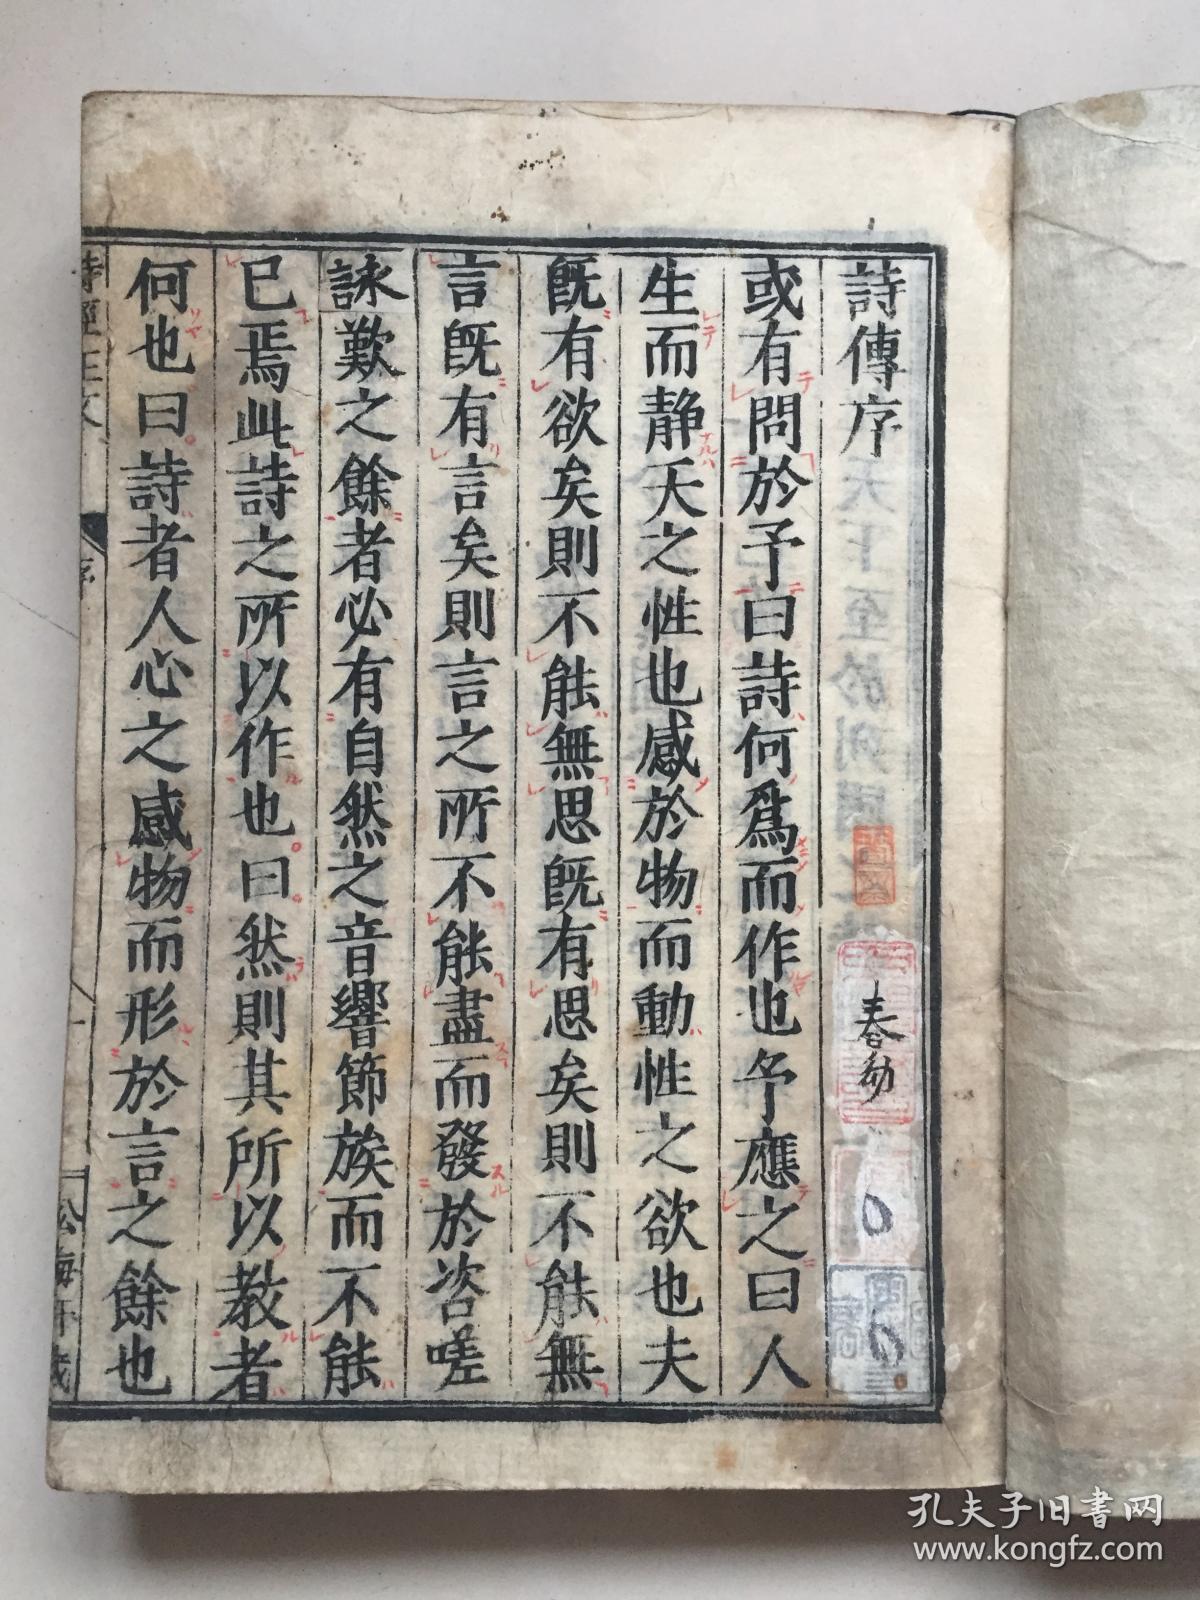 詩傳序
或有問於予曰詩何爲而作也予應之曰人
生而静天之性也感於物而動性之欲也夫
既有欲矣則不能無思既有思矣則不能無
言既有言矣則言之所不能盡而發於咨嗟
詠歎之餘者必有自然之音響節族而不能
已焉此詩之所以作也曰然則其所以教者
何也曰詩者人心之感物而形於言之餘也
詩經正文
序
孔夫子旧書网
www.kongfz.com